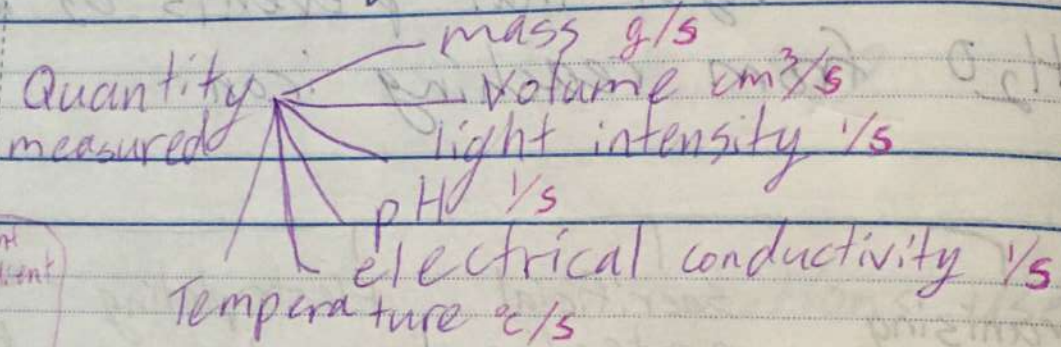 mass g/s
Quantity measured
Volume cm³/s
light intensity 1/s
pH 1/s
electrical conductivity 1/s
Temperature °c/s